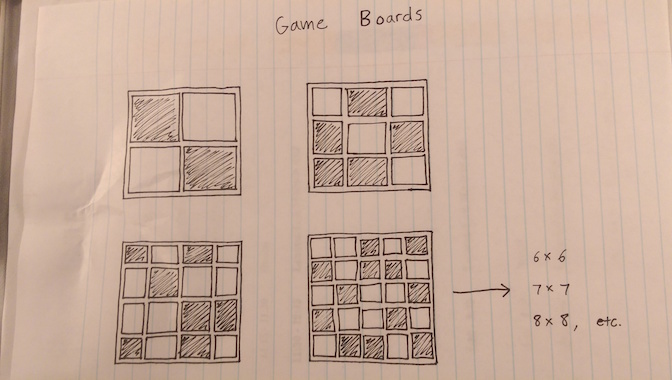 Game Boards
6×6
7×7
8×8, etc.